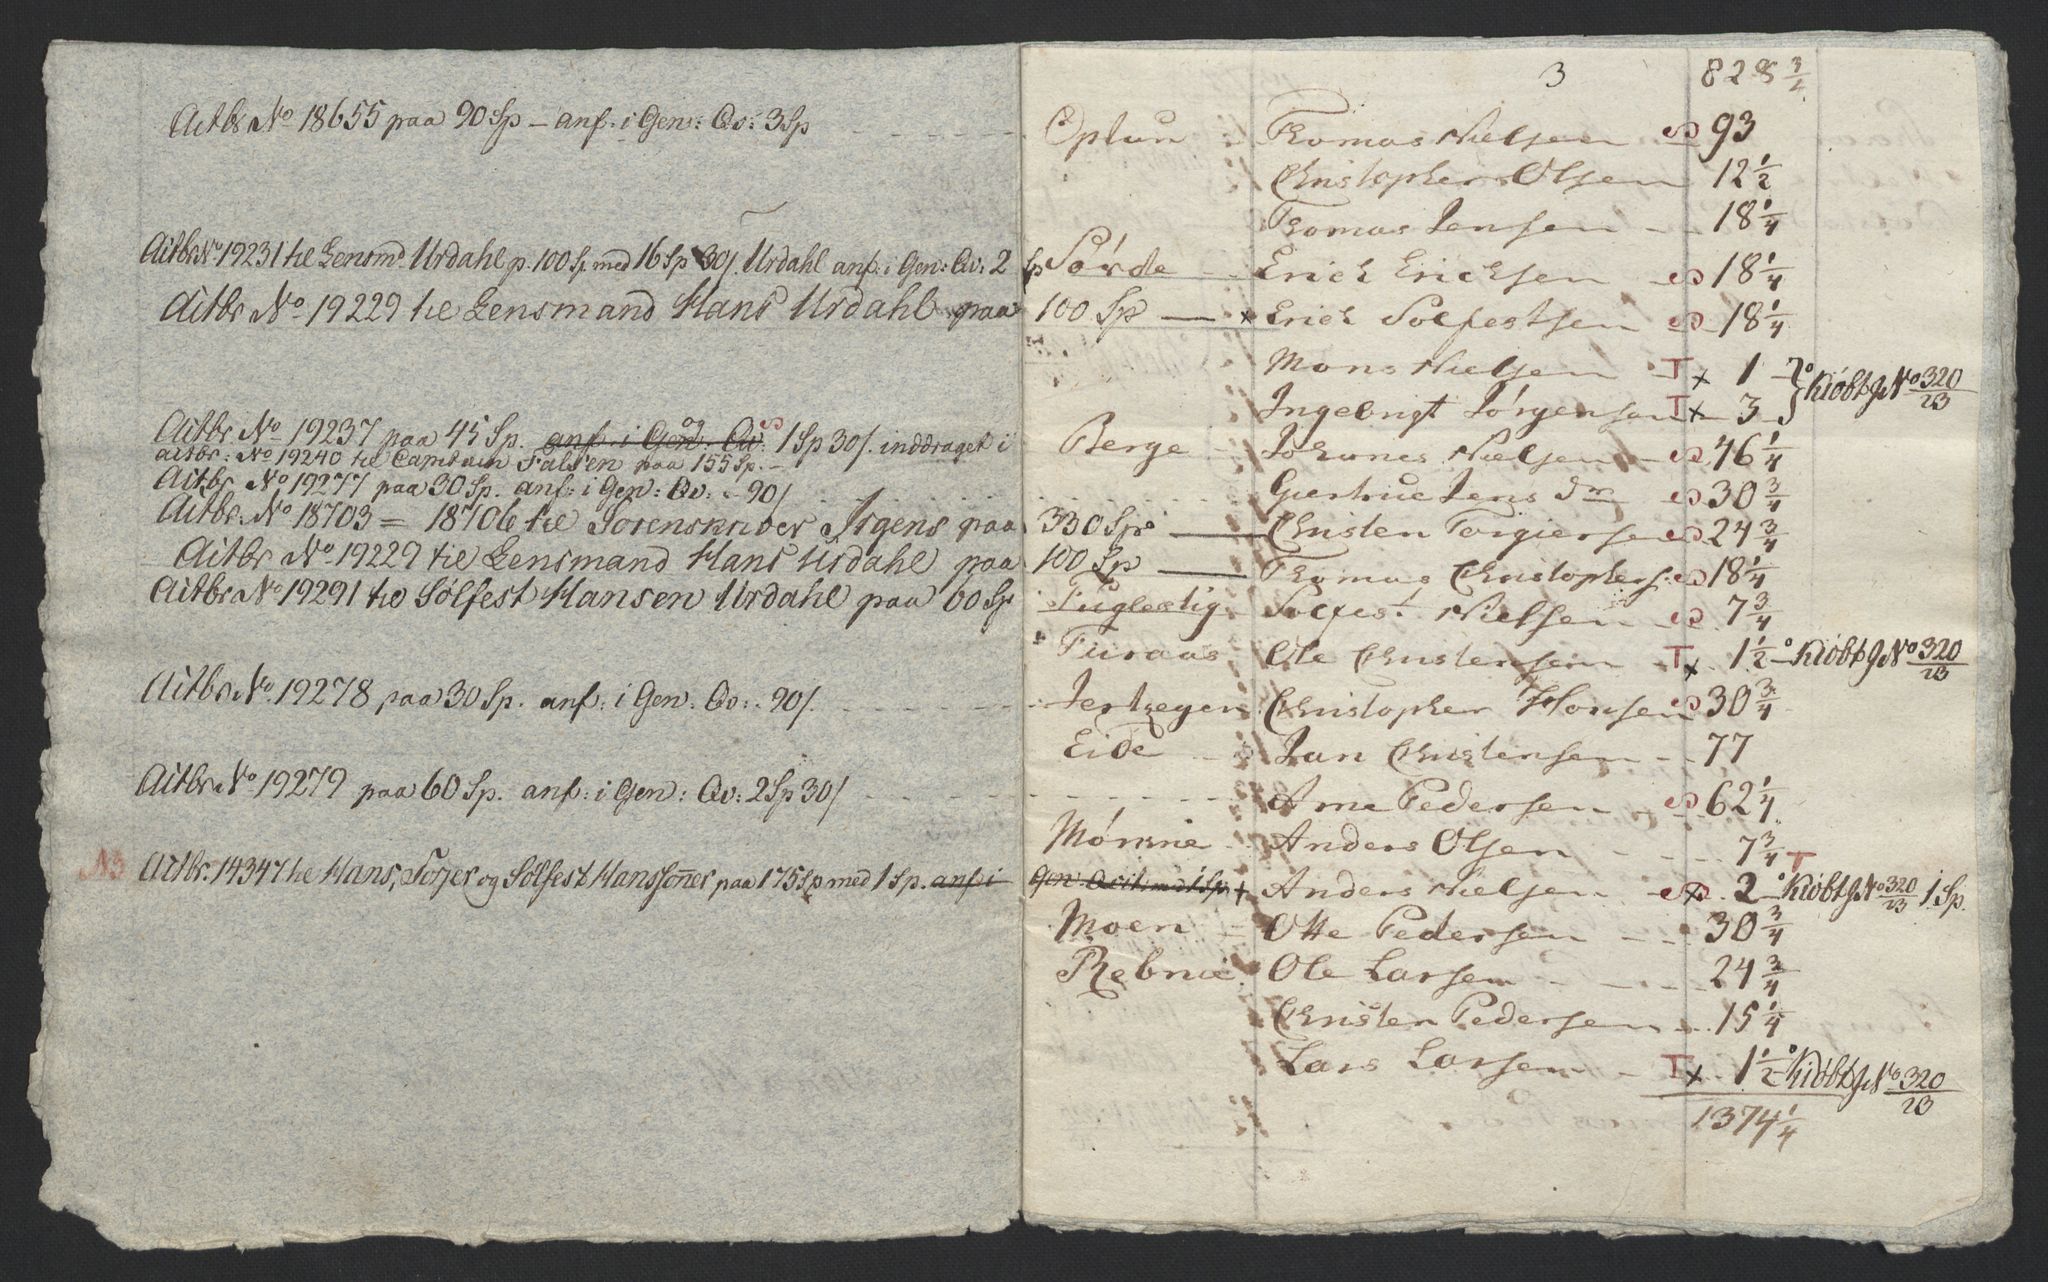 Actbr No 18655 paa 90 Sp – anf: i Gen: Qv: 3 Sp
Actbr No 19231 til Lensmd Urdahl p. 100 Sp med 16 Sp 30/. Urdahl anf: i Gen: Qv: 2 Sp
Actbr No 19229 til Lensmand Hans Urdahl paa 100 Sp
Actbr No 19237 paa 45 Sp. anf. i Gen. Qv: og 1 Sp 30/. inddraget i
actbr: No 19240 til Captain Falsen paa 155 Sp. –
Actbr No 19277 paa 30 Sp. anf: i Gen: Qv: - 90/
Actbr. No 18703 = 18706 til Sorenskriver Irgens paa 330 Sp.
Actbr No 19229 til Lensmand Hans Urdahl paa 100 Sp
Actbr No 19291 til Sølfest Hansen Urdahl paa 60 Sp
Actbr No. 19278 paa 30 Sp. anf: i Gen: Qv: . 90/.
Actbr No 19279 paa 60 Sp. anf: i Gen: Qv: 2 Sp 30/
Actbr. 14347 til Hans, Torjer og Sølfest Hanssøner paa 175 Sp med 1 Sp. anf i Gen Qvit med 1 Sp
3 828 3/4
Optun Thomas Nielsen 93
Christopher Olsen 12 1/2
Thomas Jensen 18 1/4
Sørde Erich Erichsen 18 1/4
x Erich Solfestsen 18 1/4
Mons Nielsen T x 1
Ingebrigt Jørgensen T x 3 Kiøbt J No 320/23
Berge Johanes Nielsen 46 1/4
Giertrue Jens dr 30 3/4
Christen Torgiersen 24 3/4
Thomas Christophers. 18 1/4
Fuglestig Solfest Nielsen 7 3/4
Furaas Ole Christensen T x 1 1/2 Kiøbt J No 320/23
Jertzegen Christopher Hansen 30 3/4
Eide Jan Christensen 77
Arne Pedersen 62 1/4
Mønnie Anders Olsen 7 3/4
+ Anders Nielsen x 2 T Kiøbt J No 320/23 1 Sp.
Moen Otte Pedersen 30 3/4
Rebnie Ole Larsen 24 3/4
Christen Pedersen 15 1/4
Lars Larsen T x 1 1/2 Kiøbt J No 320/23
1374 1/4